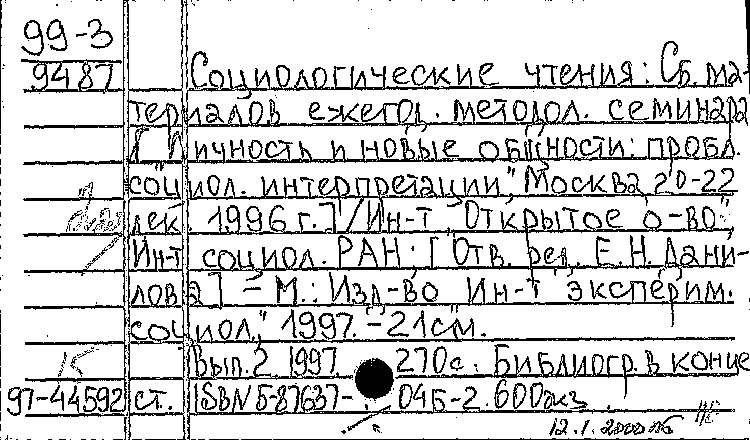 99-3
9487 Социологические чтения: Сб. ма-
териалов ежегод. методол. семинара
["Личность и новые общности: пробл.
социол. интерпретации", Москва, 20-22
дек 1996 г.] / Ин-т "Открытое о-во",
Ин-т социол. РАН; [Отв. ред. Е.Н. Дани-
лова] - М.: Изд-во "Ин-т эксперим.
социол.", 1997. - 21см.
15 Вып. 2. 1997. 270с. Библиогр. в конце
97-44592 ст. ISBN 5-87637-045-2. 600экз
12.1.2000